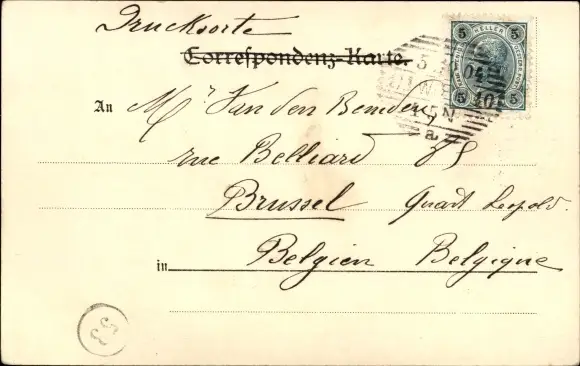 Drucksorte
Correspondenz-Karte.
5 HELLER 5
5 5
5 04
WIEN
10
a
An Mr Van den Bemden
rue Belliard 75
Brussel Quart Leopold.
in Belgien Belgique
3